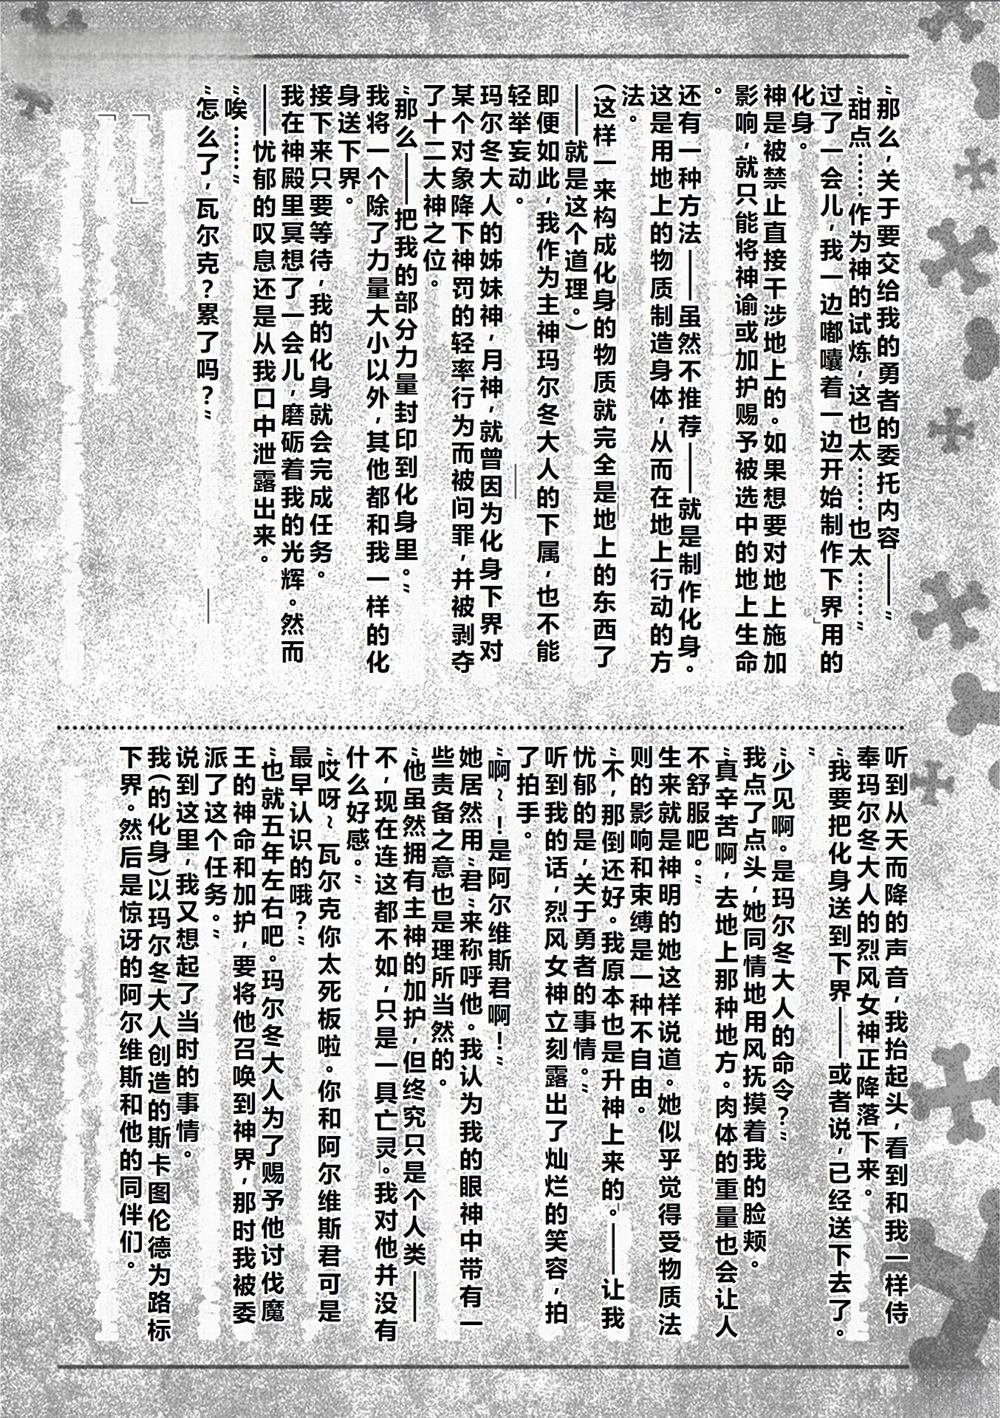 “那么，关于要交给我的勇者的委托内容——”
“甜点……作为神的试炼，这也太……也太……”
过了一会儿，我一边嘟囔着一边开始制作下界用的
化身。
神是被禁止直接干涉地上的。如果想要对地上施加
影响，就只能将神谕或加护赐予被选中的地上生命
。
还有一种方法——虽然不推荐——就是制作化身。
这是用地上的物质制造身体，从而在地上行动的方
法。
（这样一来构成化身的物质就完全是地上的东西了
——就是这个道理。）
即便如此，我作为主神玛尔冬大人的下属，也不能
轻举妄动。
玛尔冬大人的姊妹神，月神，就曾因为化身下界对
某个对象降下神罚的轻率行为而被问罪，并被剥夺
了十二大神之位。
“那么——把我的部分力量封印到化身里。”
我将一个除了力量大小以外，其他都和我一样的化
身送下界。
接下来只要等待，我的化身就会完成任务。
我在神殿里冥想了一会儿，磨砺着我的光辉。然而
——忧郁的叹息还是从我口中泄露出来。
“唉……”
“怎么了，瓦尔克？累了吗？”
听到从天而降的声音，我抬起头，看到和我一样侍
奉玛尔冬大人的烈风女神正降落下来。
“我要把化身送到下界——或者说，已经送下去了。
”
“少见啊。是玛尔冬大人的命令？”
我点了点头，她同情地用风抚摸着我的脸颊。
“真辛苦啊，去地上那种地方。肉体的重量也会让人
不舒服吧。”
生来就是神明的她这样说道。她似乎觉得受物质法
则的影响和束缚是一种不自由。
“不，那倒还好。我原本也是升神上来的。——让我
忧郁的是，关于勇者的事情。”
听到我的话，烈风女神立刻露出了灿烂的笑容，拍
了拍手。
“啊～！是阿尔维斯君啊！”
她居然用“君”来称呼他。我认为我的眼神中带有一
些责备之意也是理所当然的。
“他虽然拥有主神的加护，但终究只是个人类——
不，现在连这都不如，只是一具亡灵。我对他并没有
什么好感。”
“哎呀～瓦尔克你太死板啦。你和阿尔维斯君可是
最早认识的哦？”
“也就五年左右吧。玛尔冬大人为了赐予他讨伐魔
王的神命和加护，要将他召唤到神界，那时我被委
派了这个任务。”
说到这里，我又想起了当时的事情。
我（的化身）以玛尔冬大人创造的斯卡图伦德为路标
下界。然后是惊讶的阿尔维斯和他的同伴们。